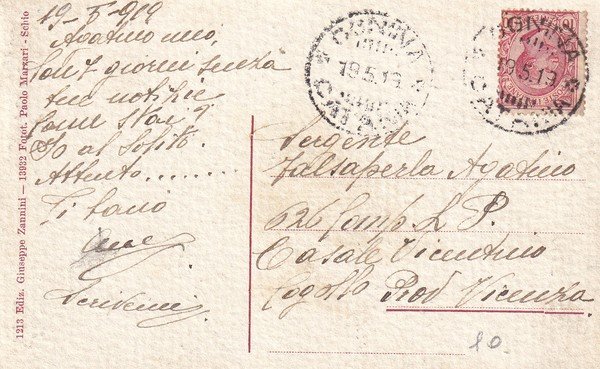 19-5-919
Agatino mio,
Son 7 giorni senza
tue notizie
Come stai?
Io al solito.
Attento........
Ti bacio
Scrivimi
1213 Ediz. Giuseppe Zannini — 13922 Fotot. Paolo Marzari - Schio
OGNINA
19.5.19
CATANIA
OGNINA
19.5.19
CATANIA
Sergente
Falsaperla Agatino
626 Comp L P.
Casale Vicentino
Cogollo Prov Vicenza
10